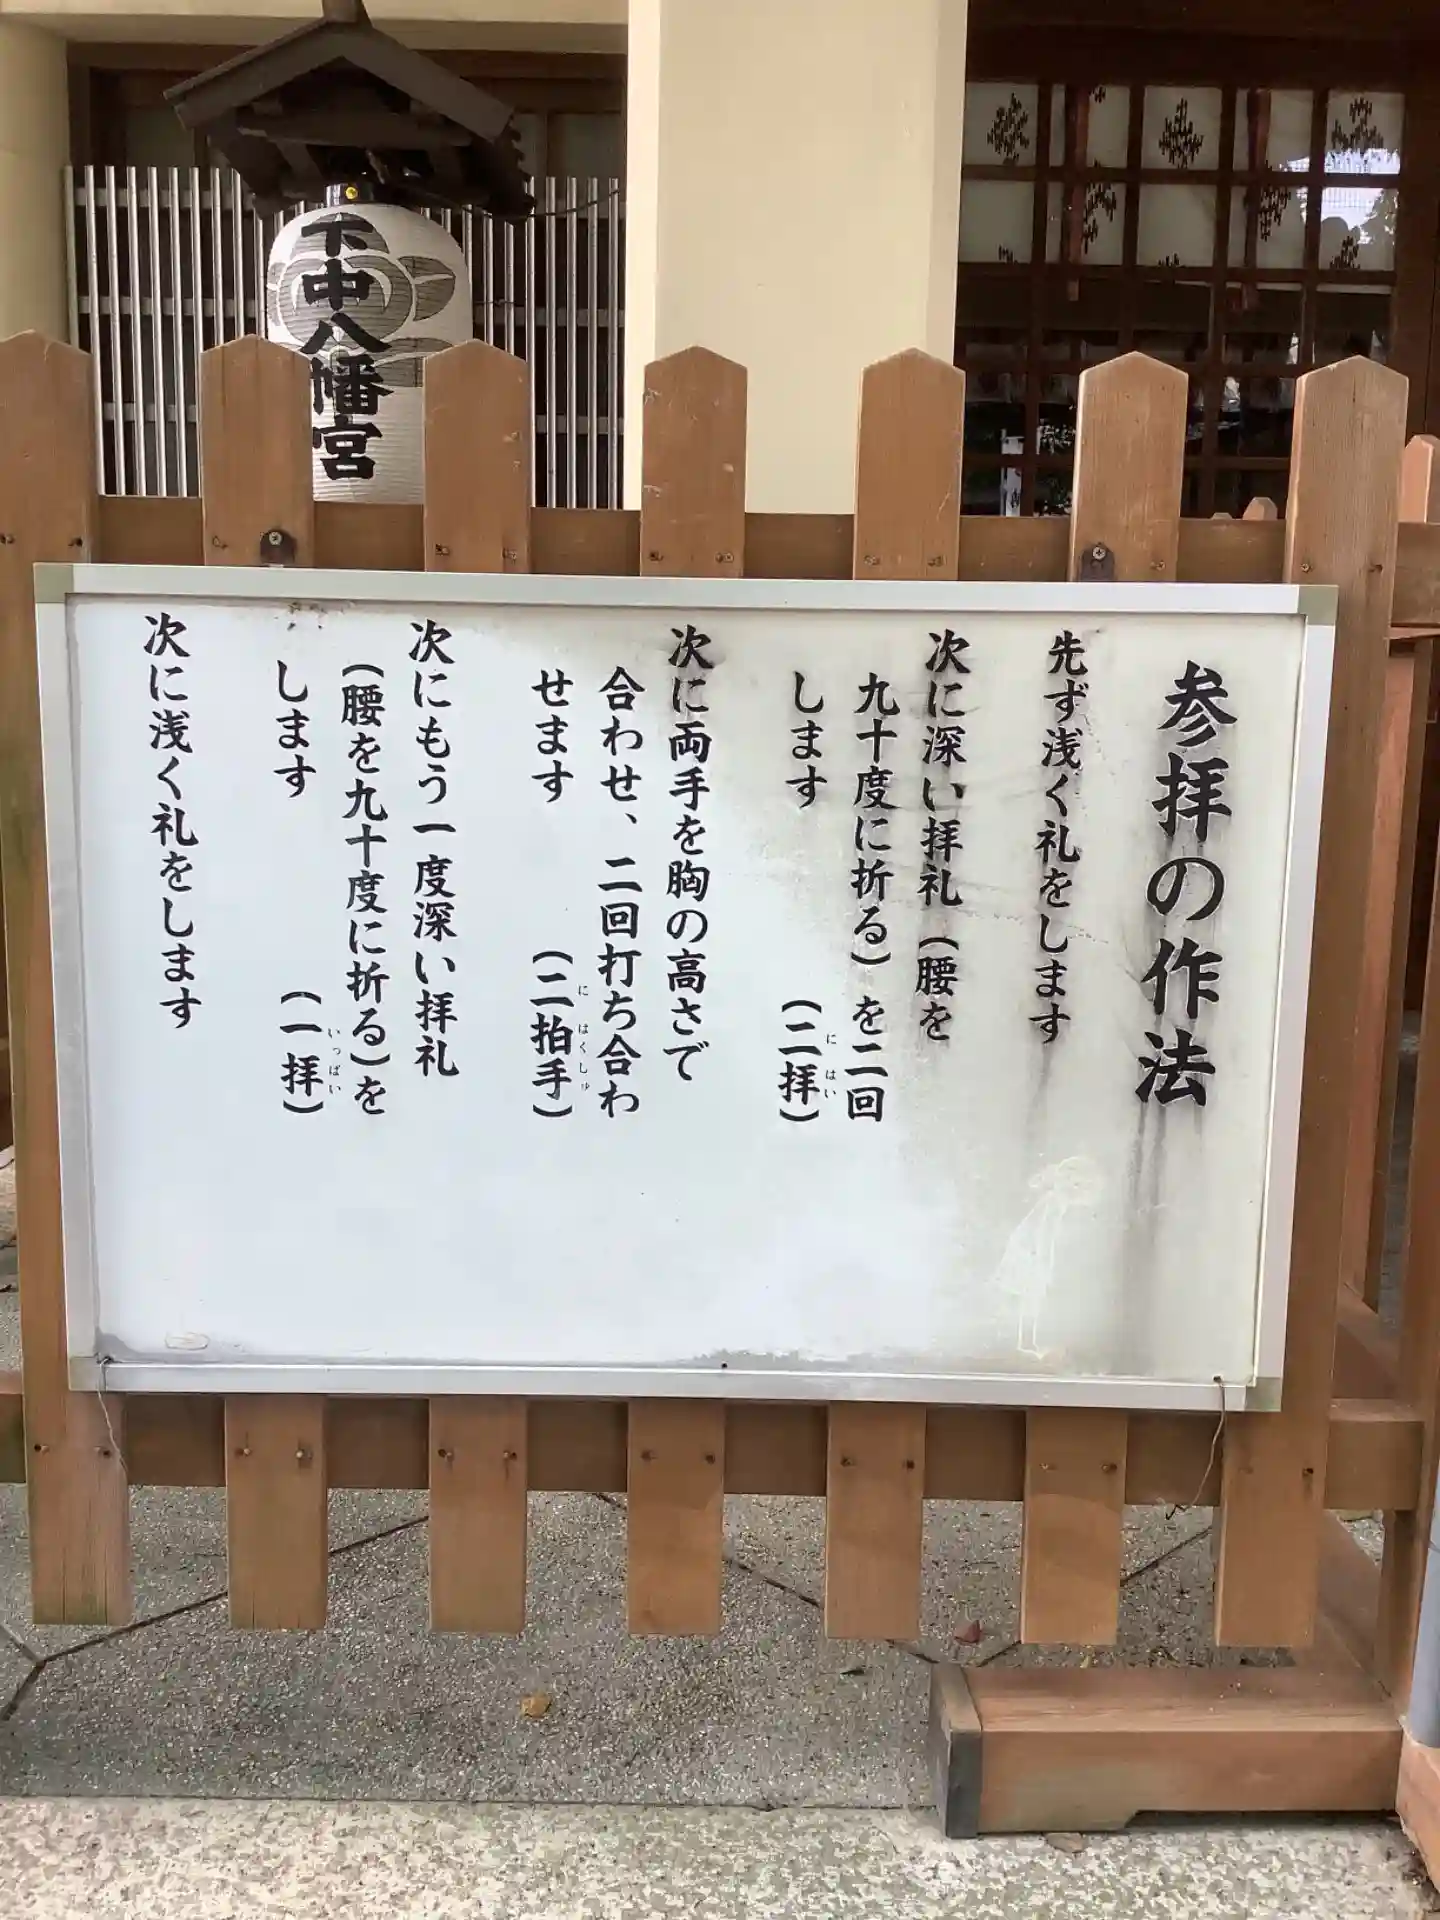 下中八幡宮
参拝の作法
先ず浅く礼をします
次に深い拝礼（腰を
九十度に折る）を二回
します　（二拝）
にはい
次に両手を胸の高さで
合わせ、二回打ち合わ
せます　（二拍手）
にはくしゅ
次にもう一度深い拝礼
（腰を九十度に折る）を
します　（一拝）
いっぱい
次に浅く礼をします